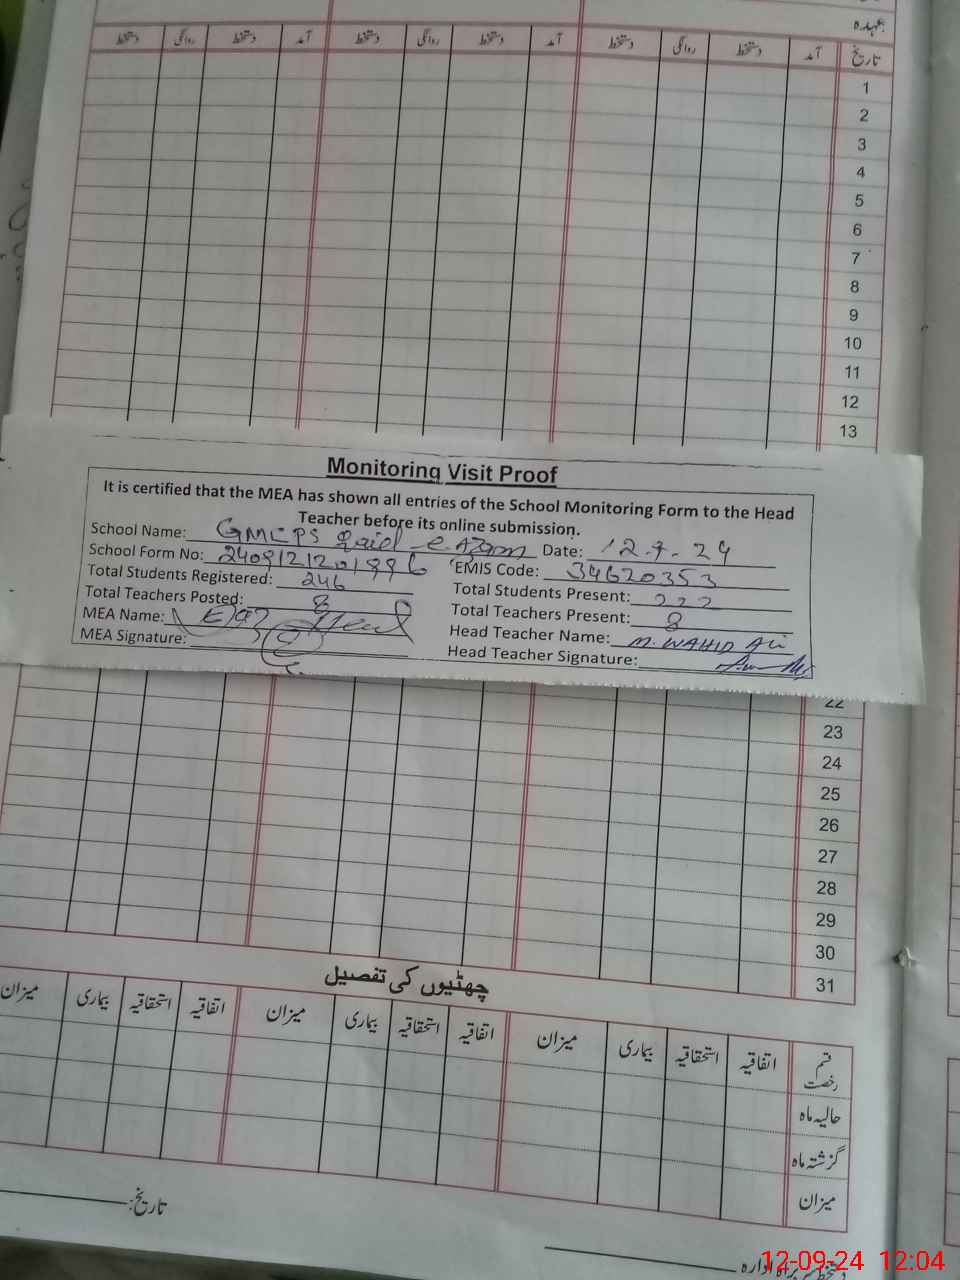 عہدہ
تاریخ آمد دستخط روانگی دستخط آمد دستخط روانگی دستخط آمد دستخط روانگی دستخط
1
2
3
4
5
6
7
8
9
10
11
12
13
Monitoring Visit Proof
It is certified that the MEA has shown all entries of the School Monitoring Form to the Head
Teacher before its online submission.
School Name: GMCPS Quaid-e-Azam Date: 12-9-24
School Form No: EMIS Code: 34620353
Total Students Registered: 246 Total Students Present: 222
Total Teachers Posted: 8 Total Teachers Present: 8
MEA Name: Head Teacher Name: M. WAHID Ali
MEA Signature: Head Teacher Signature:
22
23
24
25
26
27
28
29
30
31
چھٹیوں کی تفصیل
قسم رخصت اتفاقیہ استحقاقیہ بیماری میزان اتفاقیہ استحقاقیہ بیماری میزان اتفاقیہ استحقاقیہ بیماری میزان
حالیہ ماہ
گزشتہ ماہ
میزان
تاریخ:
دستخط سربراہ ادارہ
12-09-24 12:04